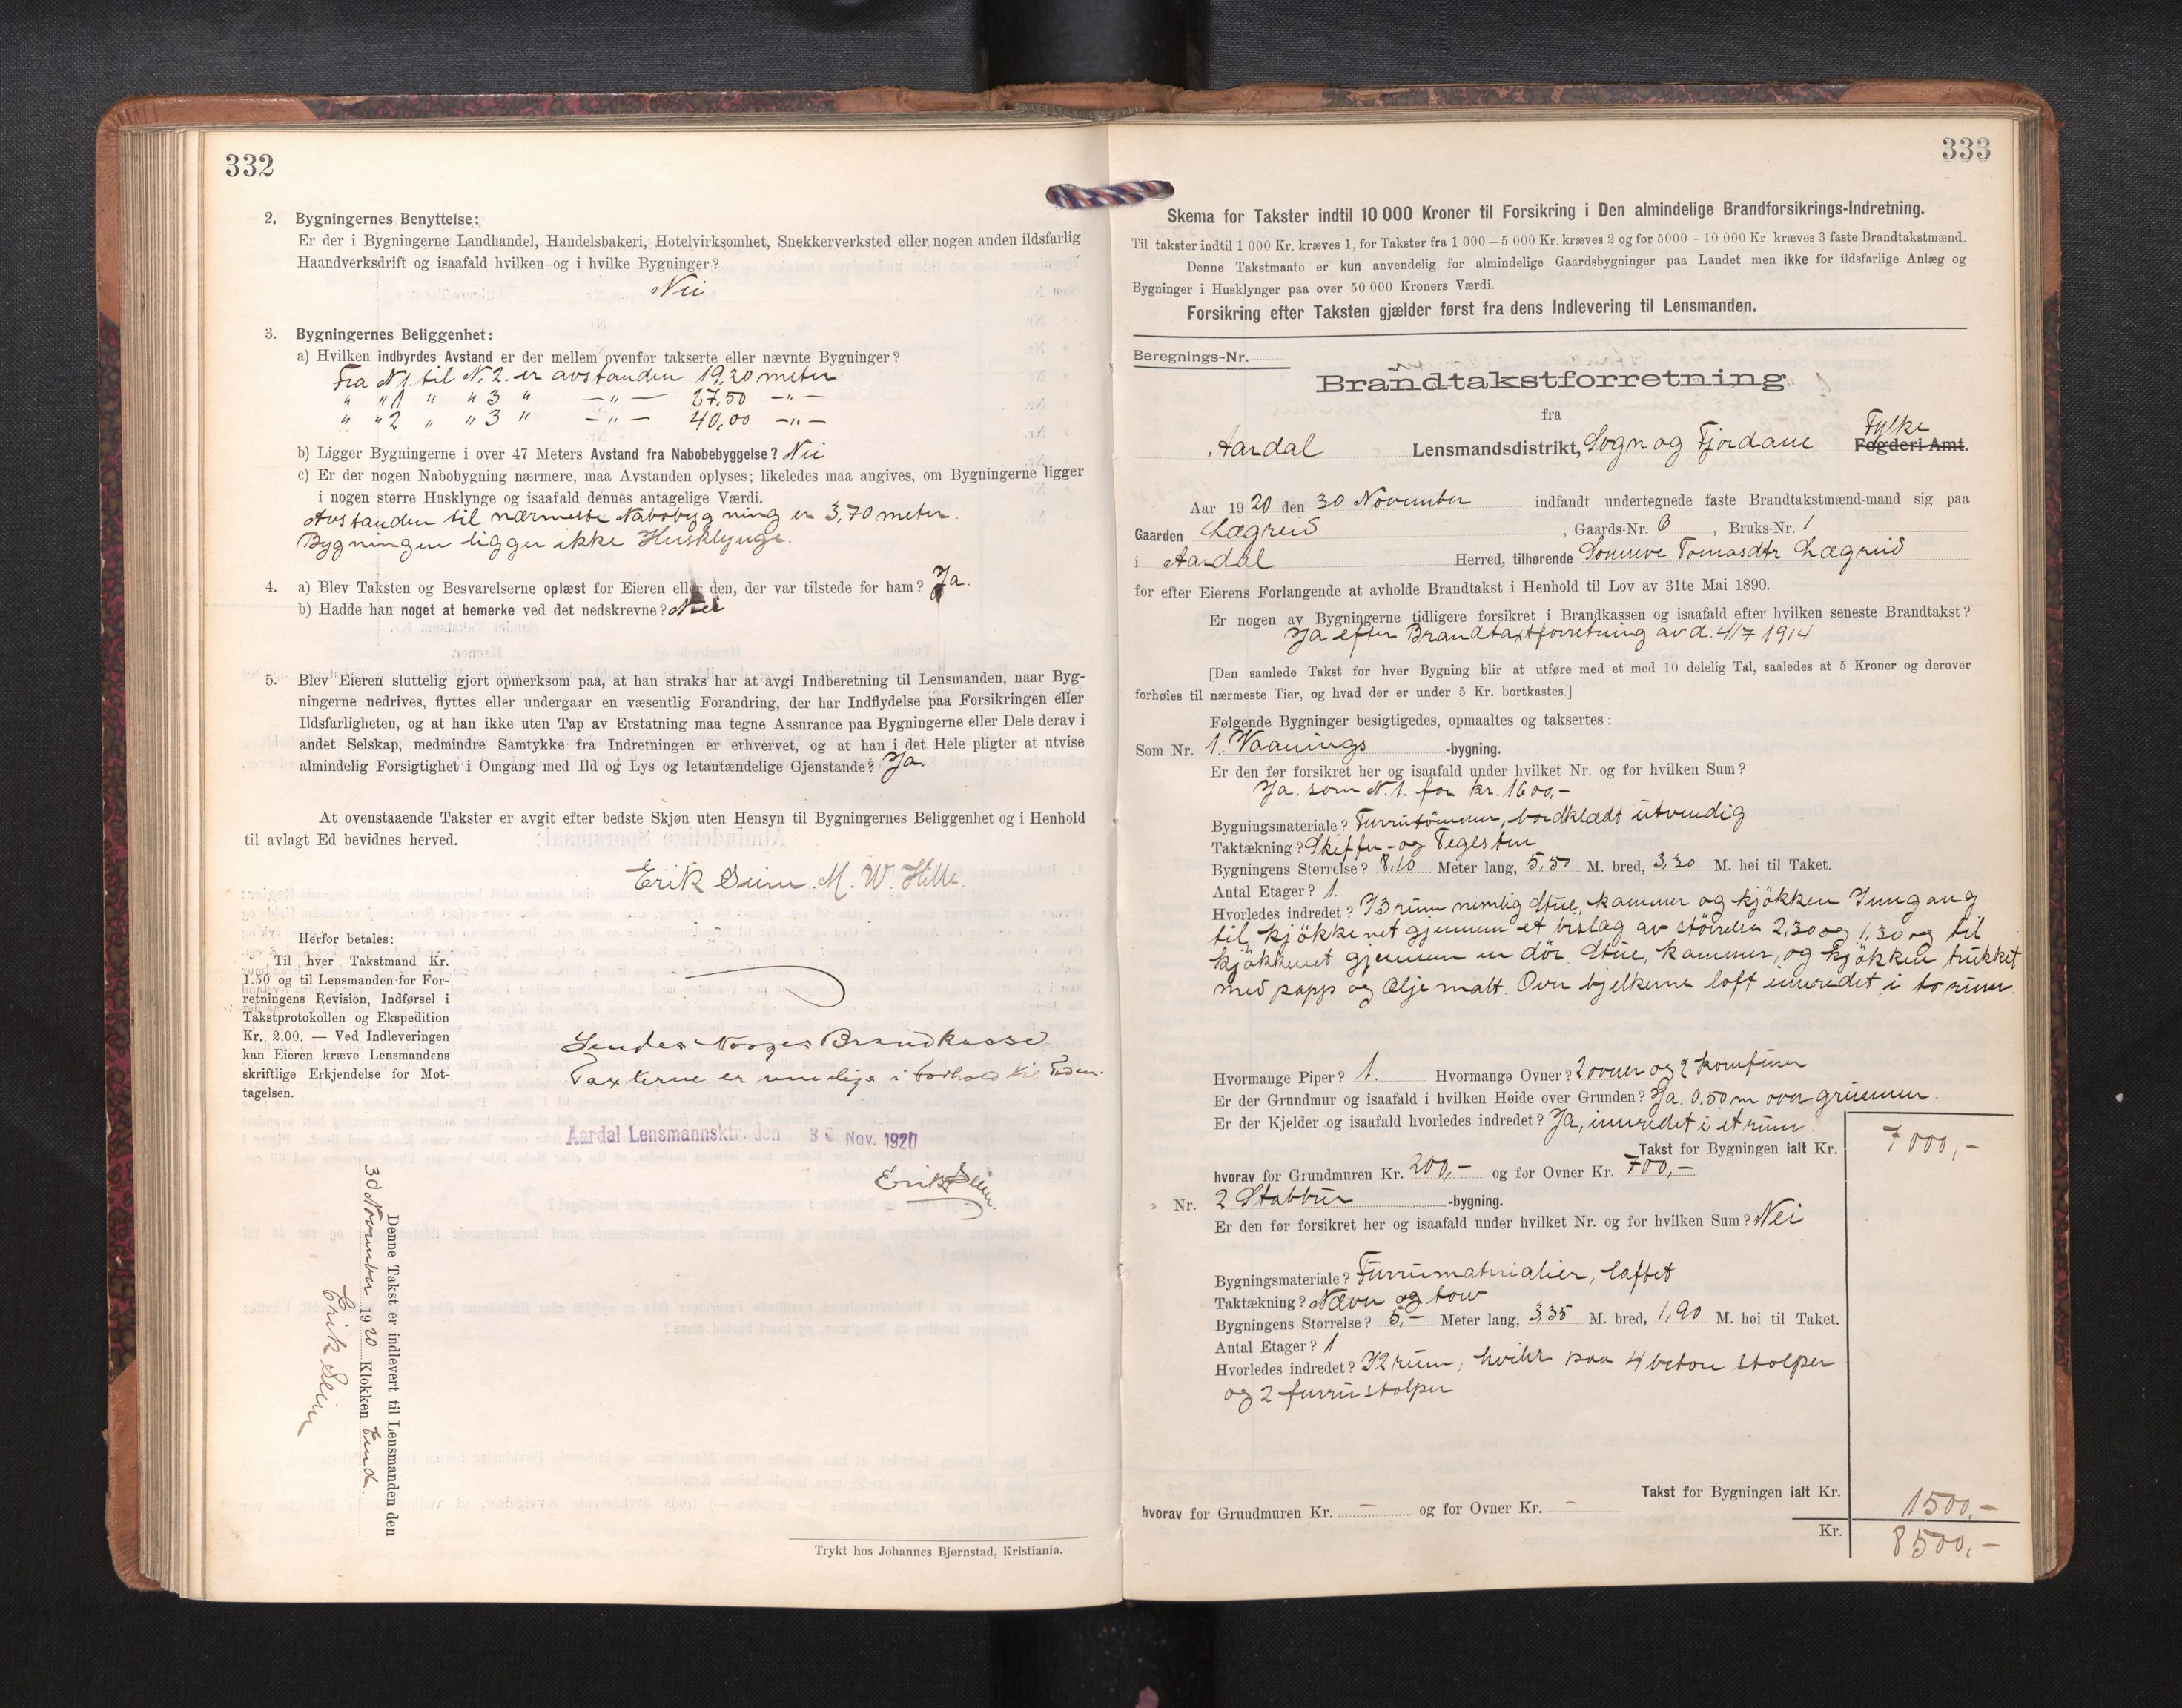 332
2. Bygningernes Benyttelse:
Er der i Bygningerne Landhandel, Handelsbakeri, Hotelvirksomhet, Snekkerverksted eller nogen anden ildsfarlig
Haandverksdrift og isaafald hvilken og i hvilke Bygninger?
Nei
3. Bygningernes Beliggenhet:
a) Hvilken indbyrdes Avstand er der mellem ovenfor takserte eller nævnte Bygninger?
Fra N 1. til N. 2. er avstanden 19,20 meter
„ „ 1 „ „ 3 „ —„— 27,50 —„—
„ „ 2 „ „ 3 „ —„— 40,00 —„—
b) Ligger Bygningerne i over 47 Meters Avstand fra Nabobebyggelse? Nei
c) Er der nogen Nabobygning nærmere, maa Avstanden oplyses; likeledes maa angives, om Bygningerne ligger
i nogen større Husklynge og isaafald dennes antagelige Værdi.
Avstanden til nærmeste Nabobygning er 3,70 meter.
Bygningen ligger ikke Husklynge.
4. a) Blev Taksten og Besvarelserne oplæst for Eieren eller den, der var tilstede for ham? Ja.
b) Hadde han noget at bemerke ved det nedskrevne? Nei
5. Blev Eieren sluttelig gjort opmerksom paa, at han straks har at avgi Indberetning til Lensmanden, naar Byg-
ningerne nedrives, flyttes eller undergaar en væsentlig Forandring, der har Indflydelse paa Forsikringen eller
Ildsfarligheten, og at han ikke uten Tap av Erstatning maa tegne Assurance paa Bygningerne eller Dele derav i
andet Selskap, medmindre Samtykke fra Indretningen er erhvervet, og at han i det Hele pligter at utvise
almindelig Forsigtighet i Omgang med Ild og Lys og letantændelige Gjenstande? Ja.
At ovenstaaende Takster er avgit efter bedste Skjøn uten Hensyn til Bygningernes Beliggenhet og i Henhold
til avlagt Ed bevidnes herved.
Erik Seim. M. W. Hille.
Herfor betales:
Til hver Takstmand Kr.
1.50 og til Lensmanden for For-
retningens Revision, Indførsel i
Takstprotokollen og Ekspedition
Kr. 2.00. — Ved Indleveringen
kan Eieren kræve Lensmandens
skriftlige Erkjendelse for Mot-
tagelsen.
Sendes Norges Brandkasse
Taxterne er rimelige i forhold til Tiden.
Aardal Lensmannsktr. den 30. Nov. 1920
Erik Seim.
Denne Takst er indlevert til Lensmanden den
30 November 1920 Klokken
Erik Seim
Trykt hos Johannes Bjørnstad, Kristiania.
333
Skema for Takster indtil 10 000 Kroner til Forsikring i Den almindelige Brandforsikrings-Indretning.
Til takster indtil 1 000 Kr. kræves 1, for Takster fra 1 000 — 5 000 Kr. kræves 2 og for 5000 - 10 000 Kr. kræves 3 faste Brandtakstmænd.
Denne Takstmaate er kun anvendelig for almindelige Gaardsbygninger paa Landet men ikke for ildsfarlige Anlæg og
Bygninger i Husklynger paa over 50 000 Kroners Værdi.
Forsikring efter Taksten gjælder først fra dens Indlevering til Lensmanden.
Beregnings-Nr.
Brandtakstforretning
fra
Aardal Lensmandsdistrikt, Sogn og Fjordane Fylke Fogderi Amt.
Aar 1920 den 30 November indfandt undertegnede faste Brandtakstmænd-mand sig paa
Gaarden Lægreid, Gaards-Nr. 6, Bruks-Nr. 1
i Aardal Herred, tilhørende Sønneve Tomasdtr Lægreid
for efter Eierens Forlangende at avholde Brandtakst i Henhold til Lov av 31te Mai 1890.
Er nogen av Bygningerne tidligere forsikret i Brandkassen og isaafald efter hvilken seneste Brandtakst?
Ja efter Brandtaxtforretning av d. 4/7 1914
[Den samlede Takst for hver Bygning blir at utføre med et med 10 delelig Tal, saaledes at 5 Kroner og derover
forhøies til nærmeste Tier, og hvad der er under 5 Kr. bortkastes.]
Følgende Bygninger besigtigedes, opmaaltes og taksertes:
Som Nr. 1. Vaanings -bygning.
Er den før forsikret her og isaafald under hvilket Nr. og for hvilken Sum?
Ja. som N. 1. for kr. 1600,-
Bygningsmateriale? Furrutømmer, bordklædt utvendig
Taktækning? Skiffer- og Teglsten
Bygningens Størrelse? 8,10 Meter lang, 5,50 M. bred, 3,30 M. høi til Taket.
Antal Etager? 1.
Hvorledes indredet? I 3 rum nemlig stue, kammer og kjøkken. Inngang
til kjøkkenet gjennem et bislag av størrelse 2,30 og 1,30 og til
kjøkkenet gjennem en dör. Stue, kammer, og kjøkken trukket
med papp og oljemalt. Over bjelkerne loft inredet i to rum.
Hvormange Piper? 1. Hvormange Ovner? 2 ovner og 2 komfurer
Er der Grundmur og isaafald i hvilken Høide over Grunden? Ja. 0,50 m over grunnen.
Er der Kjelder og isaafald hvorledes indredet? Ja, inredet i et rum.
Takst for Bygningen ialt Kr. 7000,-
hvorav for Grundmuren Kr. 200,- og for Ovner Kr. 700,-
Nr. 2 Stabbur -bygning.
Er den før forsikret her og isaafald under hvilket Nr. og for hvilken Sum? Nei
Bygningsmateriale? Furrumaterialier, laftet
Taktækning? Næver og torv
Bygningens Størrelse? 5,- Meter lang, 3,35 M. bred, 1,90 M. høi til Taket.
Antal Etager? 1
Hvorledes indredet? I 2 rum, hviler paa 4 beton stolper
og 2 furru stolper
Takst for Bygningen ialt Kr. 1500,-
hvorav for Grundmuren Kr. — og for Ovner Kr. —
Kr. 8500,-